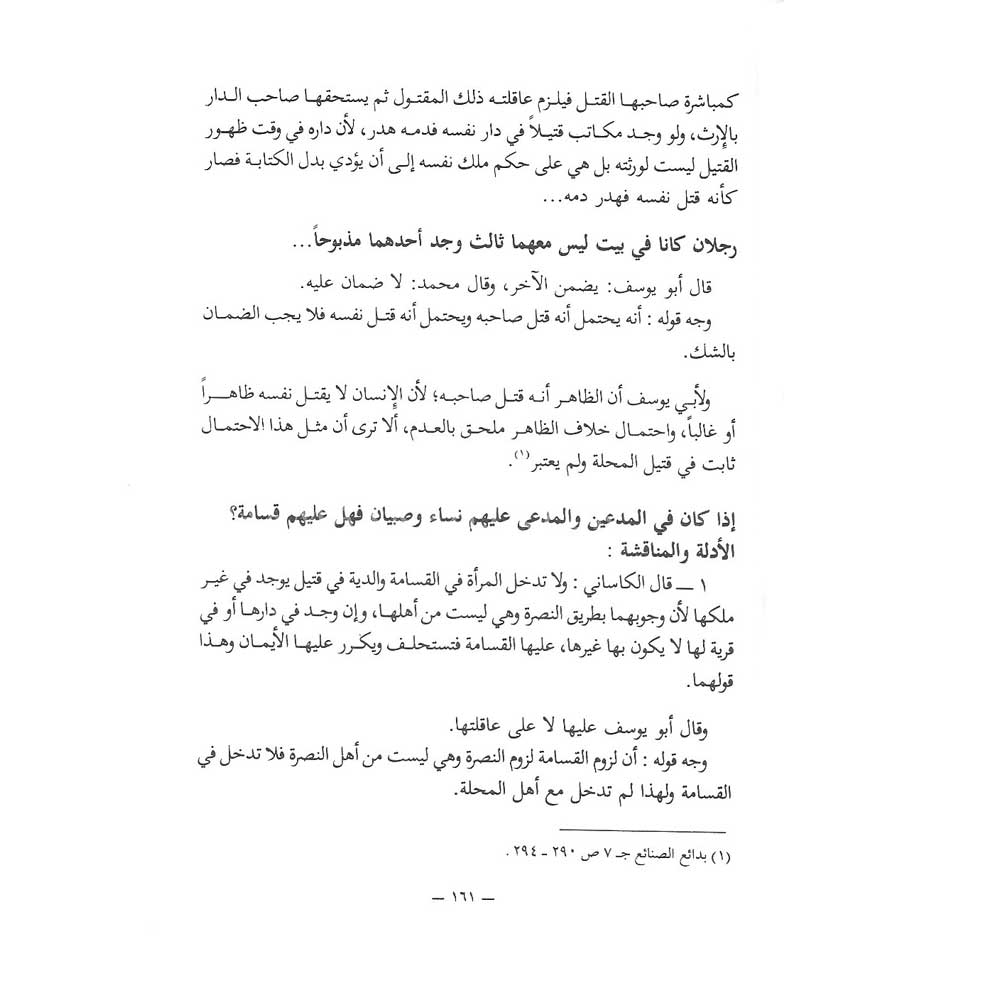 كمباشرة صاحبها القتل فيلزم عاقلته ذلك المقتول ثم يستحقها صاحب الدار
بالإرث، ولو وجد مكاتب قتيلاً في دار نفسه فدمه هدر، لأن داره في وقت ظهور
القتيل ليست لورثته بل هي على حكم ملك نفسه إلى أن يؤدي بدل الكتابة فصار
كأنه قتل نفسه فهدر دمه...
رجلان كانا في بيت ليس معهما ثالث وجد أحدهما مذبوحاً...
قال أبو يوسف: يضمن الآخر، وقال محمد: لا ضمان عليه.
وجه قوله : أنه يحتمل أنه قتل صاحبه ويحتمل أنه قتل نفسه فلا يجب الضمان
بالشك.
ولأبي يوسف أن الظاهر أنه قتل صاحبه؛ لأن الإنسان لا يقتل نفسه ظاهراً
أو غالباً، واحتمال خلاف الظاهر ملحق بالعدم، ألا ترى أن مثل هذا الاحتمال
ثابت في قتيل المحلة ولم يعتبر(١).
إذا كان في المدعين والمدعى عليهم نساء وصبيان فهل عليهم قسامة؟
الأدلة والمناقشة :
١ ــ قال الكاساني : ولا تدخل المرأة في القسامة والدية في قتيل يوجد في غير
ملكها لأن وجوبهما بطريق النصرة وهي ليست من أهلها، وإن وجد في دارها أو في
قرية لها لا يكون بها غيرها، عليها القسامة فتستحلف ويكرر عليها الأيمان وهذا
قولهما.
وقال أبو يوسف عليها لا على عاقلتها.
وجه قوله : أن لزوم القسامة لزوم النصرة وهي ليست من أهل النصرة فلا تدخل في
القسامة ولهذا لم تدخل مع أهل المحلة.
(١) بدائع الصنائع جـ ٧ ص ٢٩٠ ـ ٢٩٤ .
ــ ١٦١ ــ